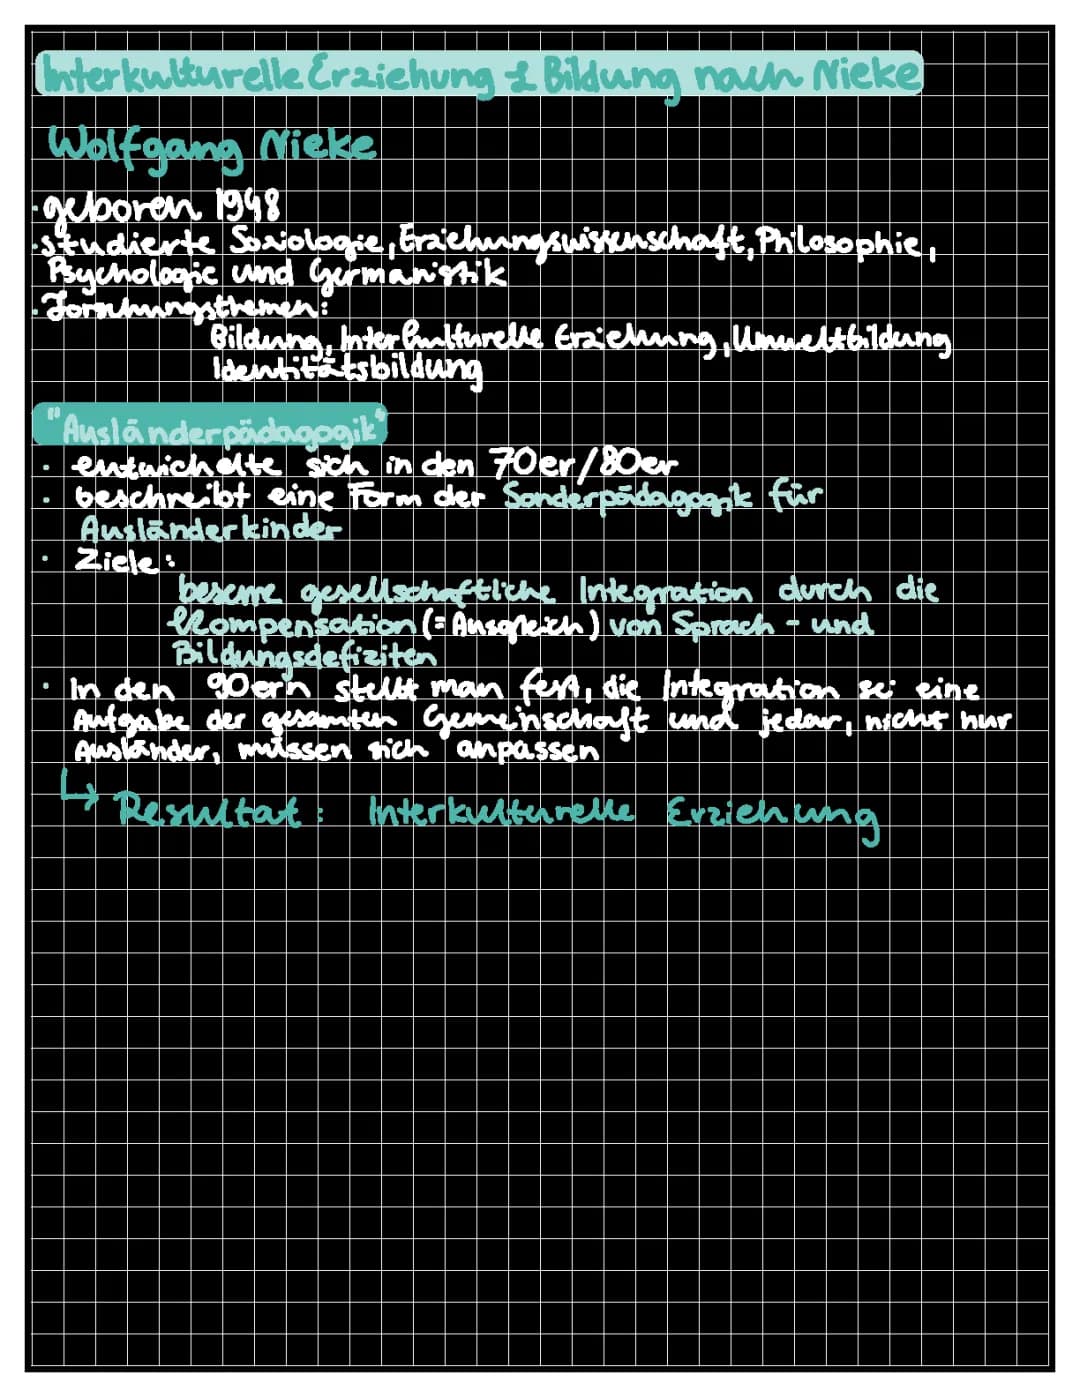 Interkulturelle Erziehung & Bildung nach Nieke
Wolfgang Nieke
· geboren 1948
· studierte Soziologie, Erziehungswissenschaft, Philosophie,
Psychologie und Germanistik
· Forschungsthemen:
Bildung, Interkulturelle Erziehung, Umweltbildung
Identitätsbildung
"Ausländerpädagogik"
· entwickelte sich in den 70er/80er
· beschreibt eine Form der Sonderpädagogik für
Ausländerkinder
· Ziele:
bessere gesellschaftliche Integration durch die
Kompensation (= Ausgleich) von Sprach- und
Bildungsdefiziten
· In den 90ern stellt man fest, die Integration sei eine
Aufgabe der gesamten Gemeinschaft und jeder, nicht nur
Ausländer, müssen sich anpassen
↳ Resultat: Interkulturelle Erziehung